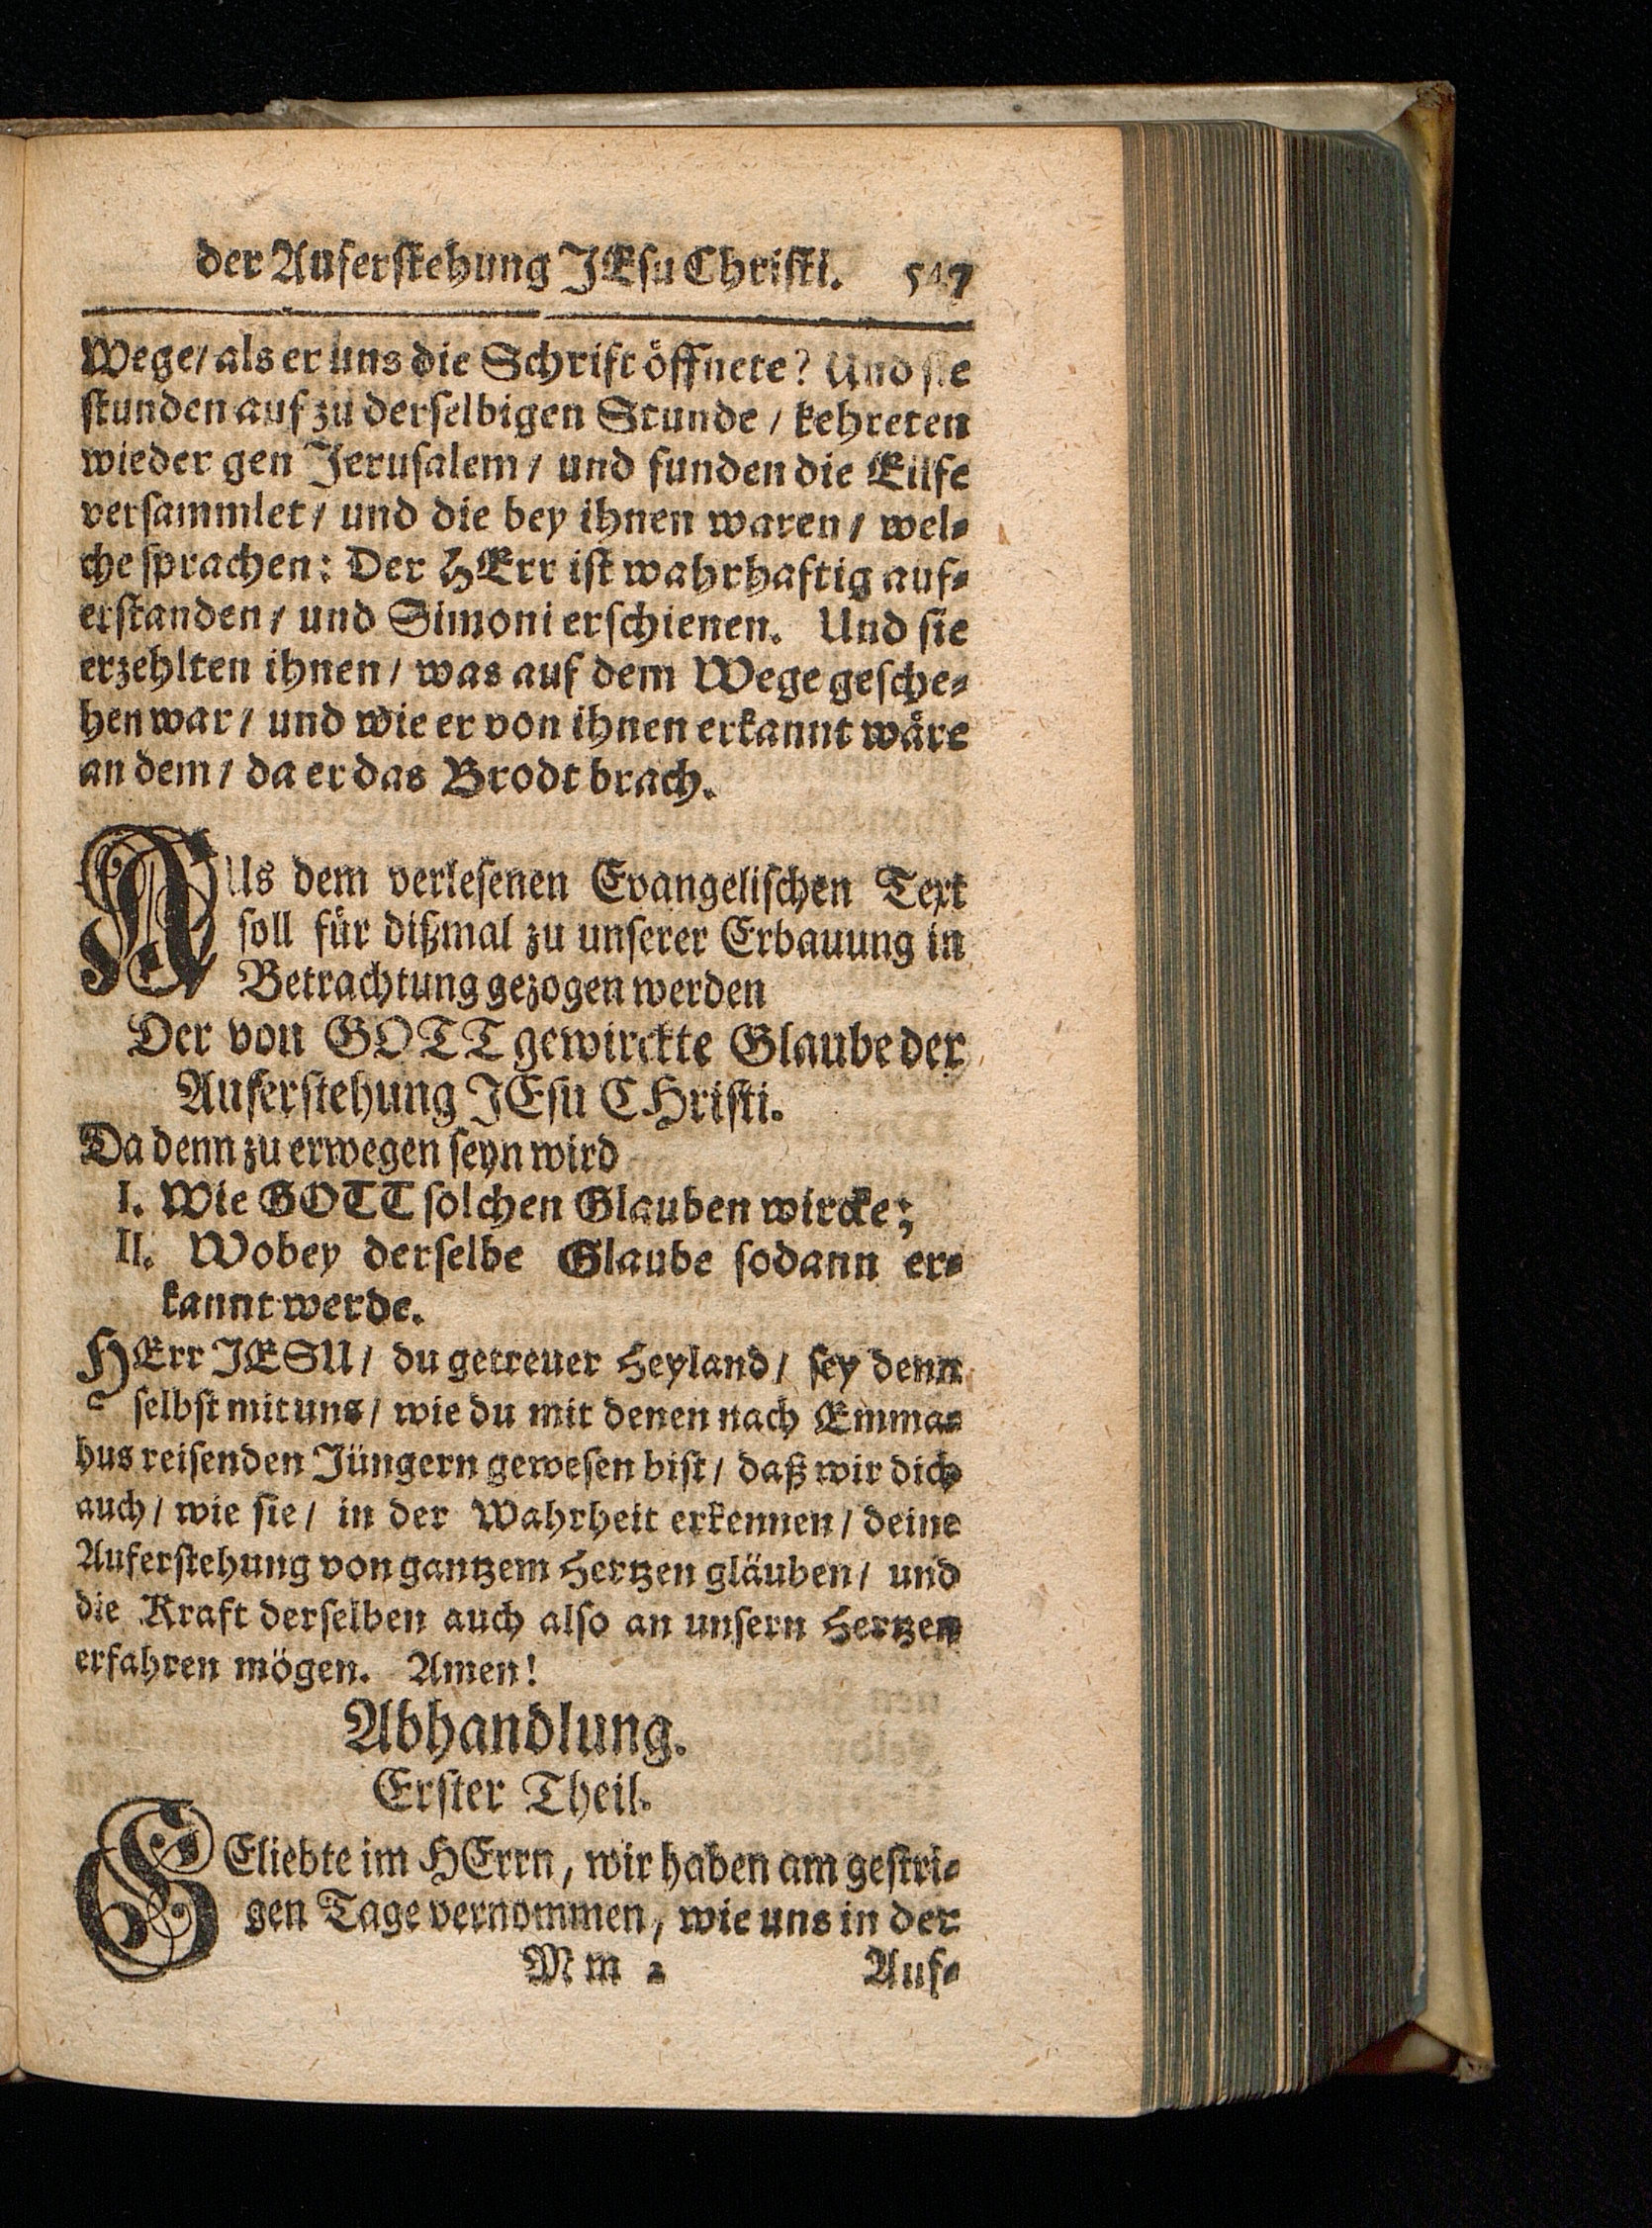 der Auferstehung JEsu Christi. 547
Wege/ als er uns die Schrift öffnete? Und sie
stunden auf zu derselbigen Stunde / kehreten
wieder gen Jerusalem / und funden die Eilfe
versammlet / und die bey ihnen waren / wel-
che sprachen: Der HErr ist wahrhaftig auf-
erstanden / und Simoni erschienen. Und sie
erzehlten ihnen / was auf dem Wege gesche-
hen war / und wie er von ihnen erkannt wäre
an dem / da er das Brodt brach.
AUs dem verlesenen Evangelischen Text
soll für dißmal zu unserer Erbauung in
Betrachtung gezogen werden
Der von GOTT gewirckte Glaube der
Auferstehung JEsu CHristi.
Da denn zu erwegen seyn wird
I. Wie GOTT solchen Glauben wircke;
II. Wobey derselbe Glaube sodann er-
kannt werde.
HErr JESU / du getreuer Heyland / sey denn
selbst mit uns / wie du mit denen nach Emma-
hus reisenden Jüngern gewesen bist / daß wir dich
auch / wie sie / in der Wahrheit erkennen / deine
Auferstehung von gantzem Hertzen gläuben / und
die Kraft derselben auch also an unsern Hertzen
erfahren mögen. Amen!
Abhandlung.
Erster Theil.
GEliebte im HErrn, wir haben am gestri-
gen Tage vernommen, wie uns in der
Mm 2 Auf-